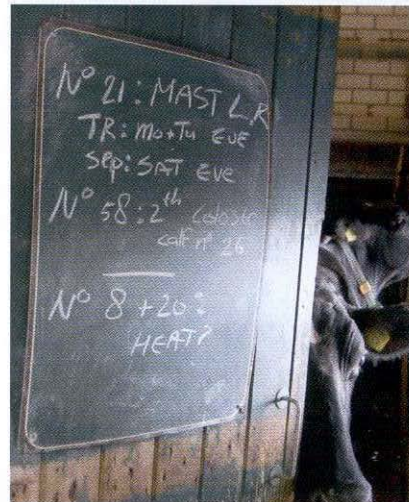 Nº 21: MAST L.R
TR: Mo+Tu EVE
Sep: SAT EVE
Nº 58: 2th Colostr
calf nº 26
Nº 8 + 20:
HEAT?